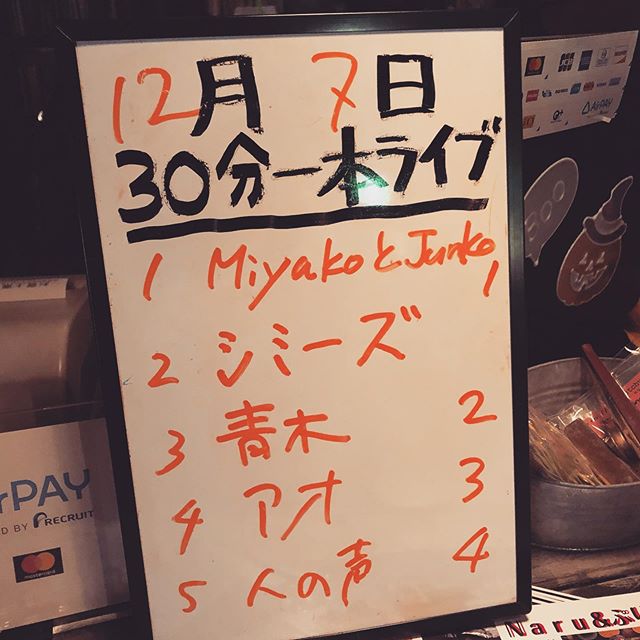 12月 7日
30分一本ライブ
1 MiyakoとJunko 1
2 シミーズ
3 青木 2
4 アオ 3
5 人の声 4
rPAY
D BY RECRUIT
mastercard
AirPAY
JCB
Naru&ぷ